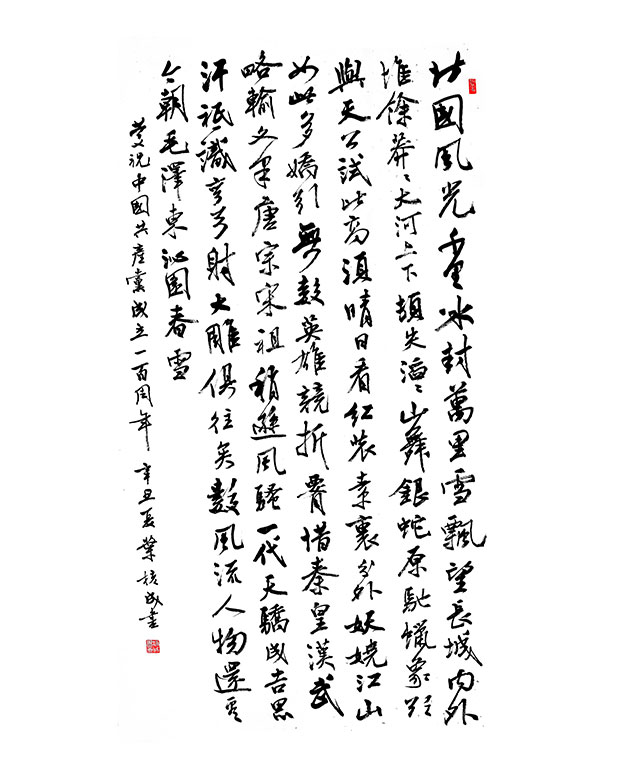 北國風光千里冰封萬里雪飄望長城內外
惟餘莽〻大河上下頓失滔〻山舞銀蛇原馳蠟象欲
與天公試比高須晴日看紅裝素裹分外妖嬈江山
如此多嬌引無數英雄競折腰惜秦皇漢武
略輸文采唐宗宋祖稍遜風騷一代天驕成吉思
汗祇識彎弓射大雕俱往矣數風流人物還看
今朝毛澤東沁園春雪
慶祝中國共產黨成立一百周年 辛丑夏葉成書